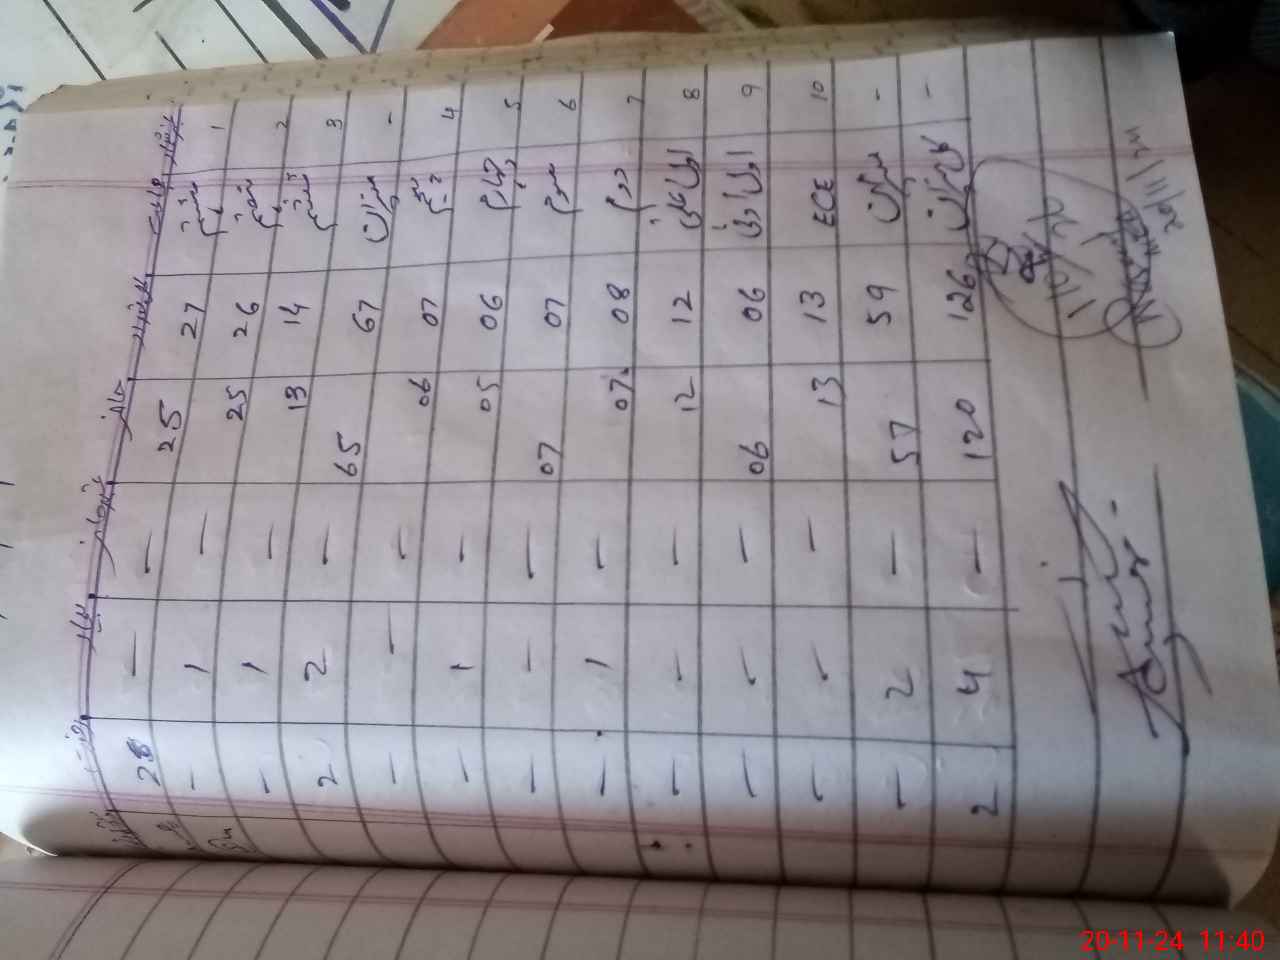 نمبر شمار جماعت حاضر غیر حاضر بیمار رخصت
1 ہشتم 27 25 — — 28
2 ہفتم 26 25 — 1 -
3 ششم 14 13 — 1 -
- میزان 67 65 — 2 2
4 پنجم 07 06 — — —
5 چہارم 06 05 — 1 —
6 سوم 07 07 — — —
7 دوم 08 07 — 1 —
8 اول پکی 12 12 — — —
9 اول کچی 06 06 — — —
10 ECE 13 13 — — —
- میزان 59 57 — 2 —
- کل میزان 126 120 — 4 2
20/11/24
20-11-24 11:40